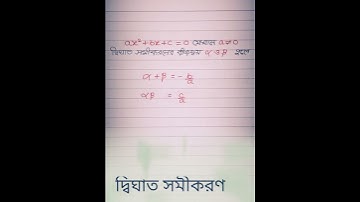 ax² + bx + c = 0 যেখানে a ≠ 0
দ্বিঘাত সমীকরণের বীজদ্বয় α ও β হলে
α + β = - b/a
αβ = c/a
দ্বিঘাত সমীকরণ